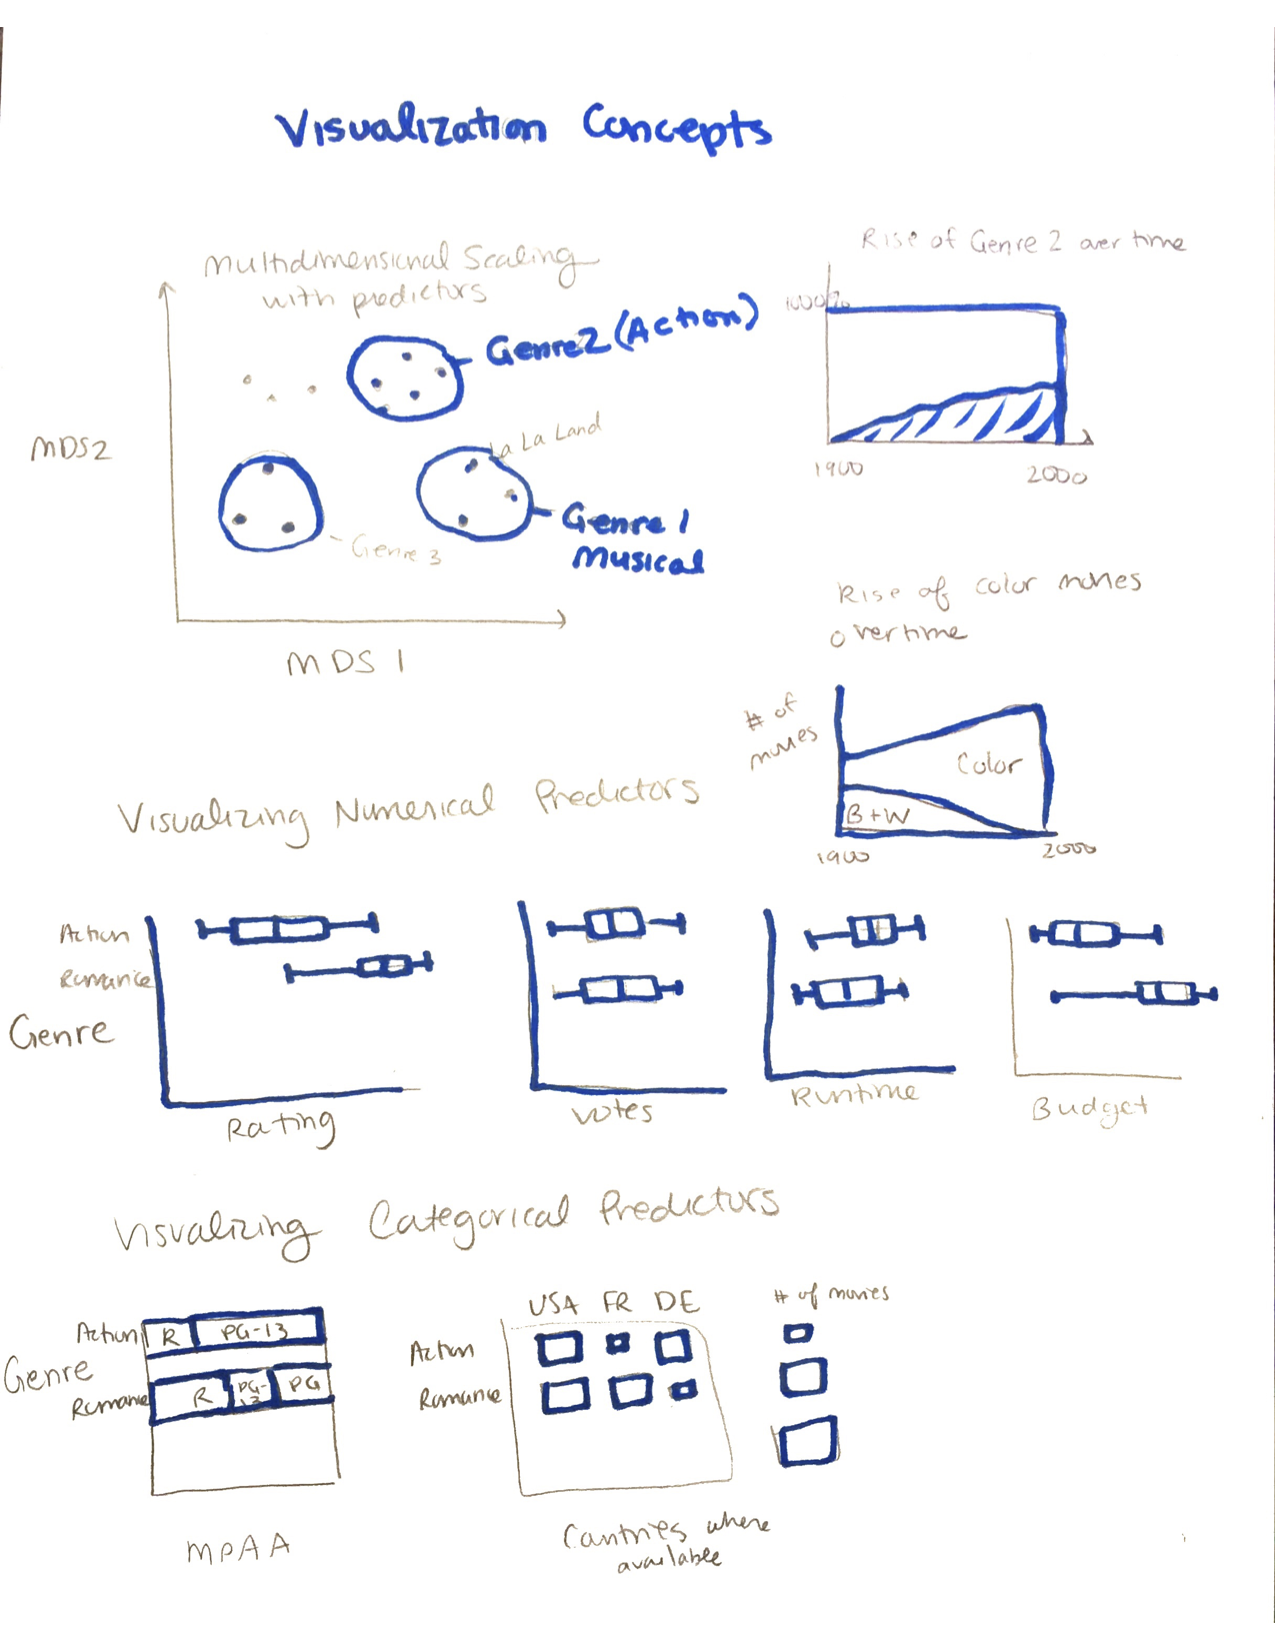 Visualization Concepts
Multidimensional Scaling
with predictors
MDS2
Genre2 (Action)
La La Land
Genre 3
Genre 1
Musical
MDS 1
Rise of Genre 2 over time
1900
2000
Rise of color movies
over time
# of
movies
Color
B+W
1900
2000
Visualizing Numerical Predictors
Action
Romance
Genre
Rating
Votes
Runtime
Budget
Visualizing Categorical Predictors
Action
R
PG-13
Genre
Romance
R
PG-
13
PG
MPAA
USA FR DE
Action
Romance
# of movies
Countries where
available